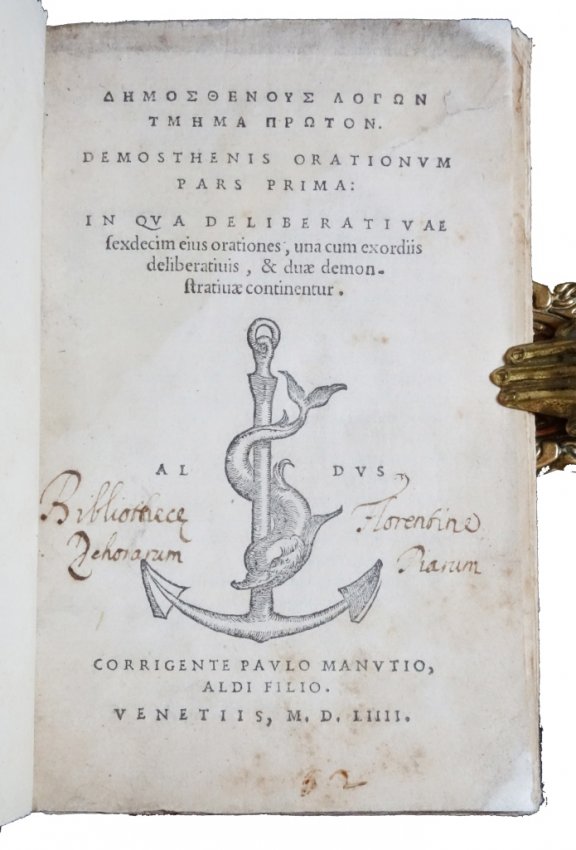 ΔΗΜΟΣΘΕΝΟΥΣ ΛΟΓΩΝ
ΤΜΗΜΑ ΠΡΩΤΟΝ.
DEMOSTHENIS ORATIONVM
PARS PRIMA:
IN QVA DELIBERATIVAE
ſexdecim eius orationes, una cum exordiis
deliberatiuis, & duæ demon-
ſtratiuæ continentur.
AL DVS
Bibliothecę Florentinę
Piarum
CORRIGENTE PAVLO MANVTIO,
ALDI FILIO.
VENETIIS, M. D. LIIII.